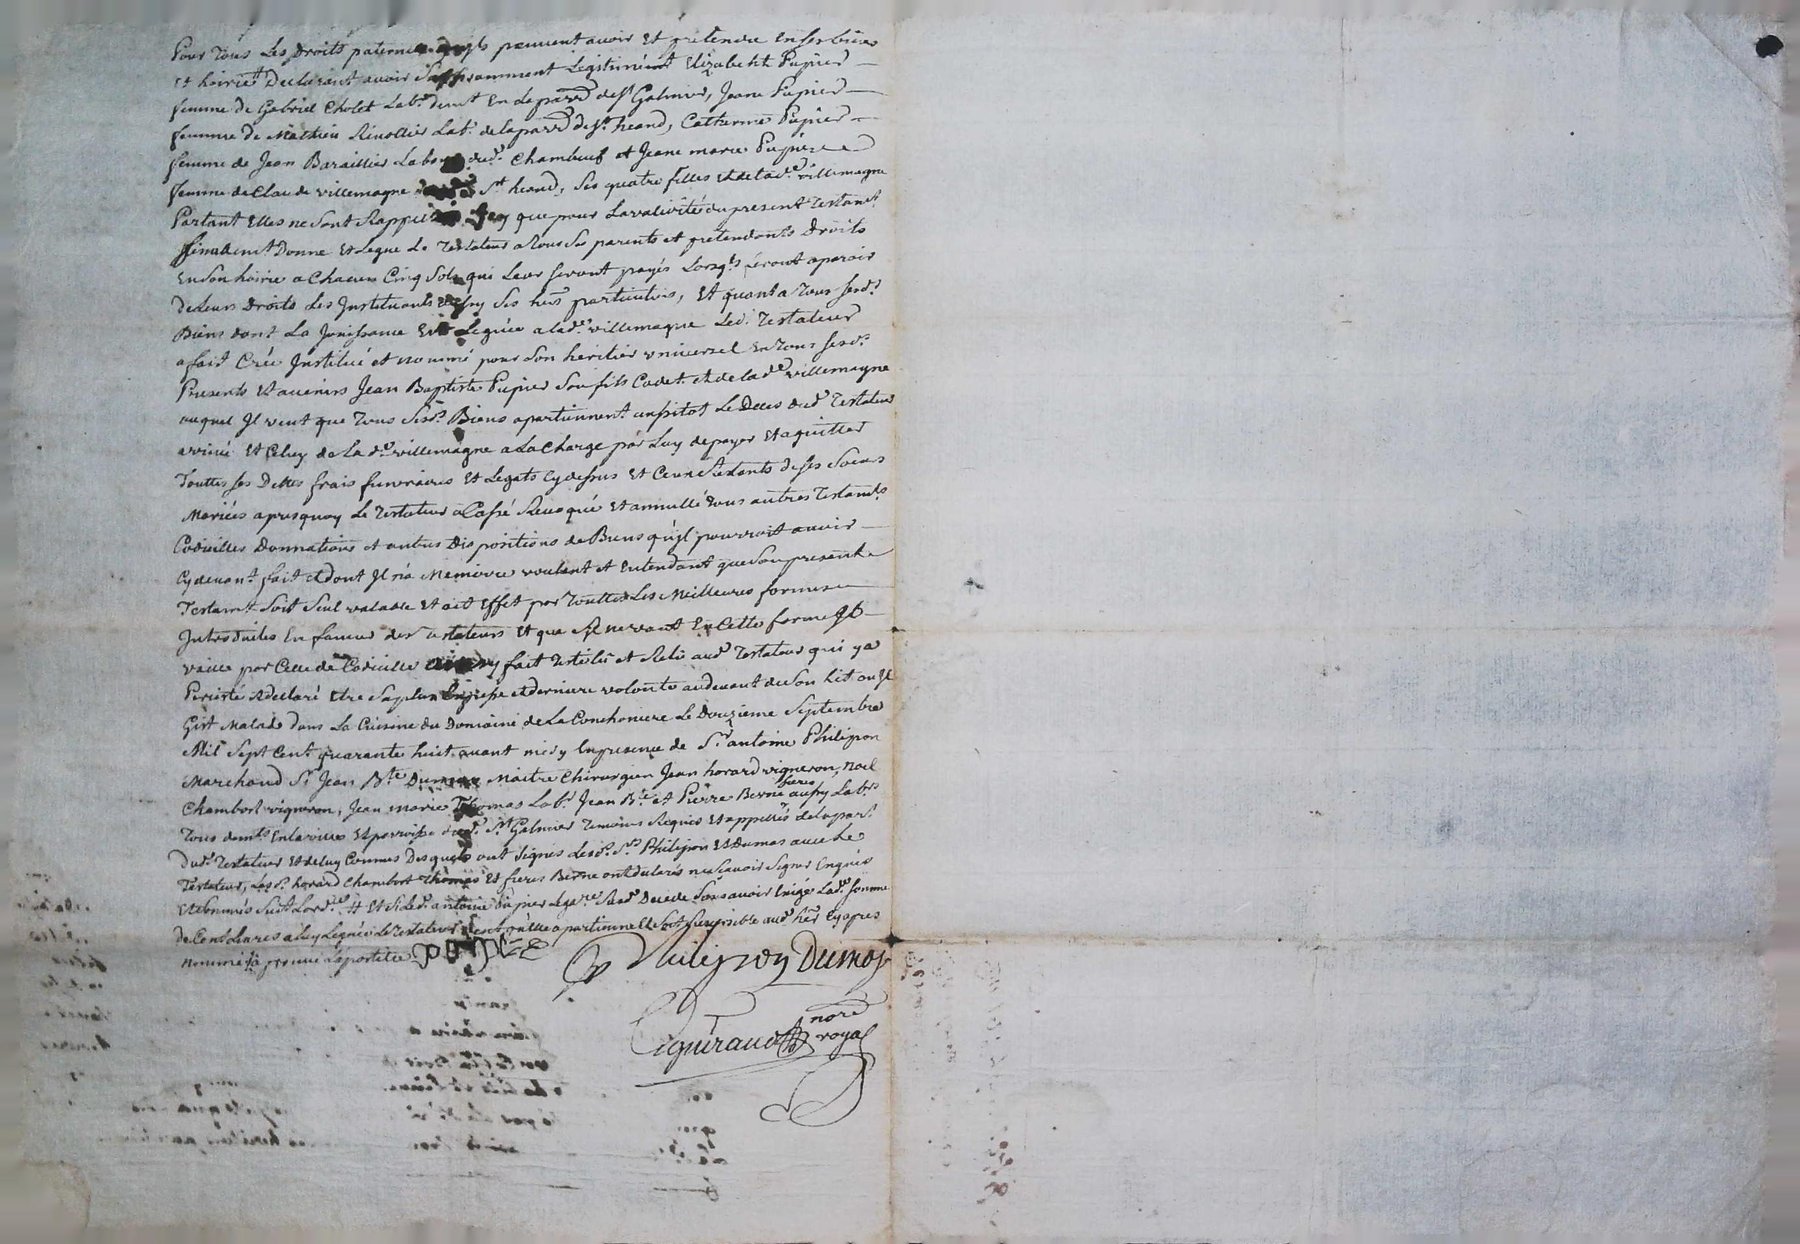 Pour Tous Les Droits paternels qu'jls peuvent avoir Et pretendre En ses biens
Et hoirie Declarant avoir Suffisamment Legitimé Elizabeth Pupier
femme de Gabriel Cholet Lab.r dem.t En La parr.e de S.t Galmier, Jeane Pupier
femme de Mathieu Rivollier Lab.r de la parr.e de S.t heand, Catherine Pupier
femme de Jean Baraillier Lab dud. Chambeuf et Jeane marie Pupier
femme de Claude villemagne S.t heand, Ses quatre filles et de lad.e villemagne
Partant Elles ne Sont Rappellées que pour La validité du present Testam.t
finallem.t Donne Et Legue Le Testateur a Tous Ses parents et pretendants Droits
En Son hoirie a Chacun Cinq Sols qui Leur Seront payés Lorsq.ls feront aparoir
de Leurs Droits Les Jnstituants Ses hers particuliers, Et quant a Tous Sesd.s
Biens dont La Jouissance Est Leguée a lad.e villemagne Led. Testateur
a fait Créé Jnstitué et nommé pour Son heritier universel En Tous Sesd.s
Presents Et avenirs Jean Baptiste Pupier Son fils Cadet et de lad.e villemagne
auquel Jl veut que Tous Sesd.s Biens apartiennent aussitot Le Deces dud. Testateur
arrivé Et Celuy de La d.e villemagne a La Charge par Luy de payer Et aquitter
Touttes Ses Dettes frais funeraires Et Legats Cydessus Et de Ses Soeurs
Mariées apres quoy Le Testateur a Cassé Revoqué Et annullé Tous autres Testam.ts
Codicilles Donnations et autres Dispositions de Biens qu'jl pourroit avoir
Cydevant fait et dont Jl n'a Memoire voulant et Entendant que Son present
Testam.t Soit Seul valable Et ait Effet par Touttes Les Meilleures formes
Jntroduites En faveur des Testateurs Et que Sil ne vaut En Cette forme Jl
vaille par Celle de Codicille fait Testé Lû et Relû aud. Testateur qui y a
Persisté et declaré Etre Sa plus Expresse et derniere volonté audevant de Son Lit ou Jl
Git Malade dans La Cuisine du Domaine de La Conchoniere Le Douzieme Septembre
Mil Sept Cent quarante huit avant midy En presence de S.r antoine Philipon
Marchand S.r Jean B.te Dumas Maitre Chirurgien Jean horard vigneron, noel
Chambort vigneron, Jean marie Thomas Lab.r Jean B.te et Pierre Berne freres aussy Lab.rs
Tous dem.ts En la ville Et parroisse dud. S.t Galmier Temoins Requis Et appellés de la par.t
Dud. Testateur Et de luy Connus Desquels ont Signés Lesd. S.rs Philipon Et Dumas avec Le
Testateur, Lesd. horard Chambort Thomas Et freres Berne ont declarés ne Scavoir Signer Enquis
Et Sommés Suiv.t Lord.ce # Et Si led. antoine Pupier Sans avoir Exigé Lad.e Somme
de Cent Livres a luy Leguée Le Testateur veut qu'elle apartienne Et Soit reversible aud. her. Cy apres
nommé
Philipon Dumas
Giguiraud nore royal